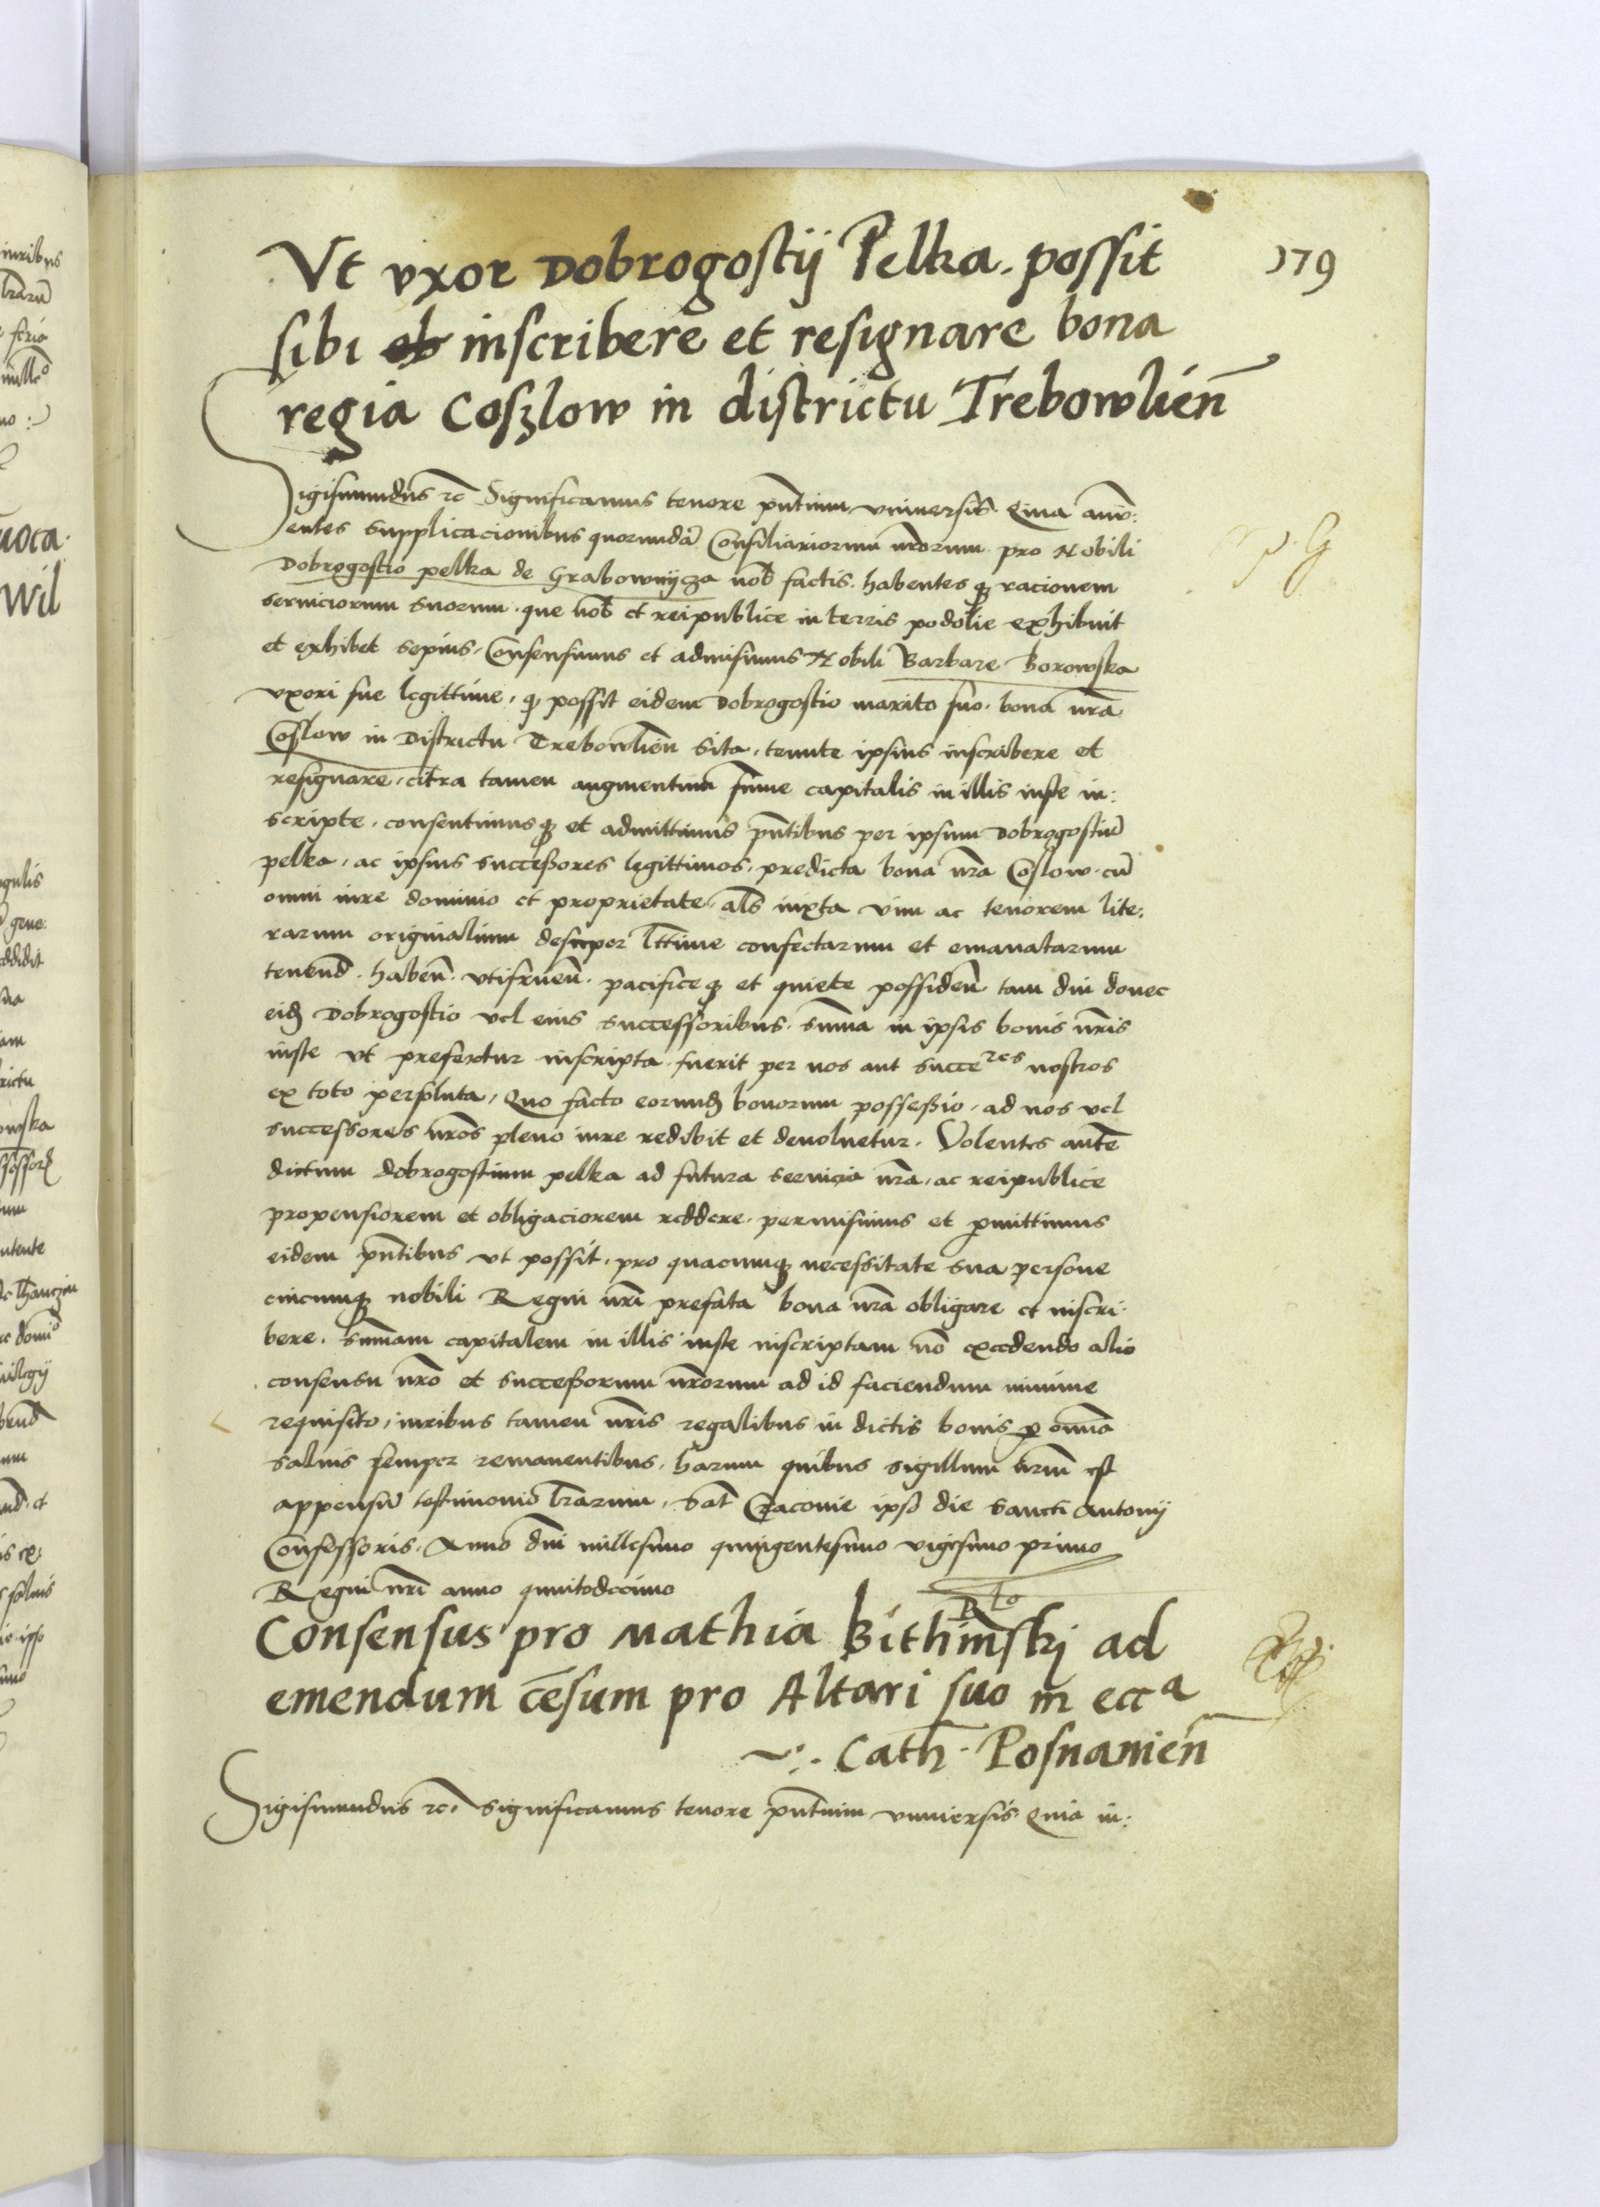 Vt vxor Dobrogostij Pelka. possit
179
sibi inscribere et resignare bona
regia Coszlow in districtu Trebowlien̄
Sigismundus ꝛc̄ Significamus tenore pn̄tium vniuersis Quia annu:
entes supplicacionibus quorundā Consiliariorum nr̄orum pro Nobili
Dobrogostio pelka de Grabownijcza nob̄ factis. habentesq̨ racionem
seruiciorum suorum. que nob̄ et reipublice in terris podolie exhibuit
et exhibet sepius, Consensimus et admisimus Nobili Barbare Borowska
vxori sue legittime, q̨ possit eidem Dobrogostio marito suo. bona nr̄a
Coslow in Districtu Trebowlien̄ sita, tenute ipsius inscribere et
resignare, citra tamen augmentum sum̄e capitalis in illis iuste in:
scripte, consentimusq̨ et admittimus pn̄tibus per ipsum Dobrogostiū
pelka, ac ipsius successores legittimos, predicta bona nr̄a Coslow. cū
omni iure dominio et proprietate, als̄ iuxta vim ac tenorem lite:
rarum originalium desuper lt̄time confectarum et emanatarum
tenend̄. haben̄. vtifruen̄. pacificeq̨ et quiete possiden̄ tam diu donec
eid̄ Dobrogostio vel eius successoribus. sum̄a in ipsis bonis nr̄is
iuste vt prefertur inscripta. fuerit per nos aut succeres nostros
ex toto persoluta, Quo facto eorund̄ bonorum possessio, ad nos vel
successores nr̄os pleno iure redibit et deuoluetur. Volentes autē
dictum Dobrogostium pelka ad futura seruicia nr̄a, ac reipublice
propensiorem et obligaciorem reddere. permisimus et ꝑmittimus
eidem pn̄tibus vt possit, pro quacumq̨ necessitate sua persone
cuicumq̨ nobili Regni nr̄i prefata bona nr̄a obligare et inscri:
bere. sum̄am capitalem in illis iuste inscriptam nō excedendo alio
consensu nr̄o et successorum nr̄orum ad id faciendum minime
requisito, iuribus tamen nr̄is regalibus in dictis bonis ꝑ om̄ia
saluis semper remanentibus, harum quibus sigillum nr̄um est
appensū testimonio lr̄arum, Dat̄ Cracouie ipso die Sancti Antonij
Confessoris, Anno dn̄i millesimo quingentesimo vigesimo primo
Regni nr̄i anno quintodecimo
Consensus pro Mathia Bithinskj ad
emendum cēsum pro Altari suo in ecca
Cath. Posnanien̄
Sigismundus ꝛc̄, Significamus tenore pn̄tium vniuersis Quia in: